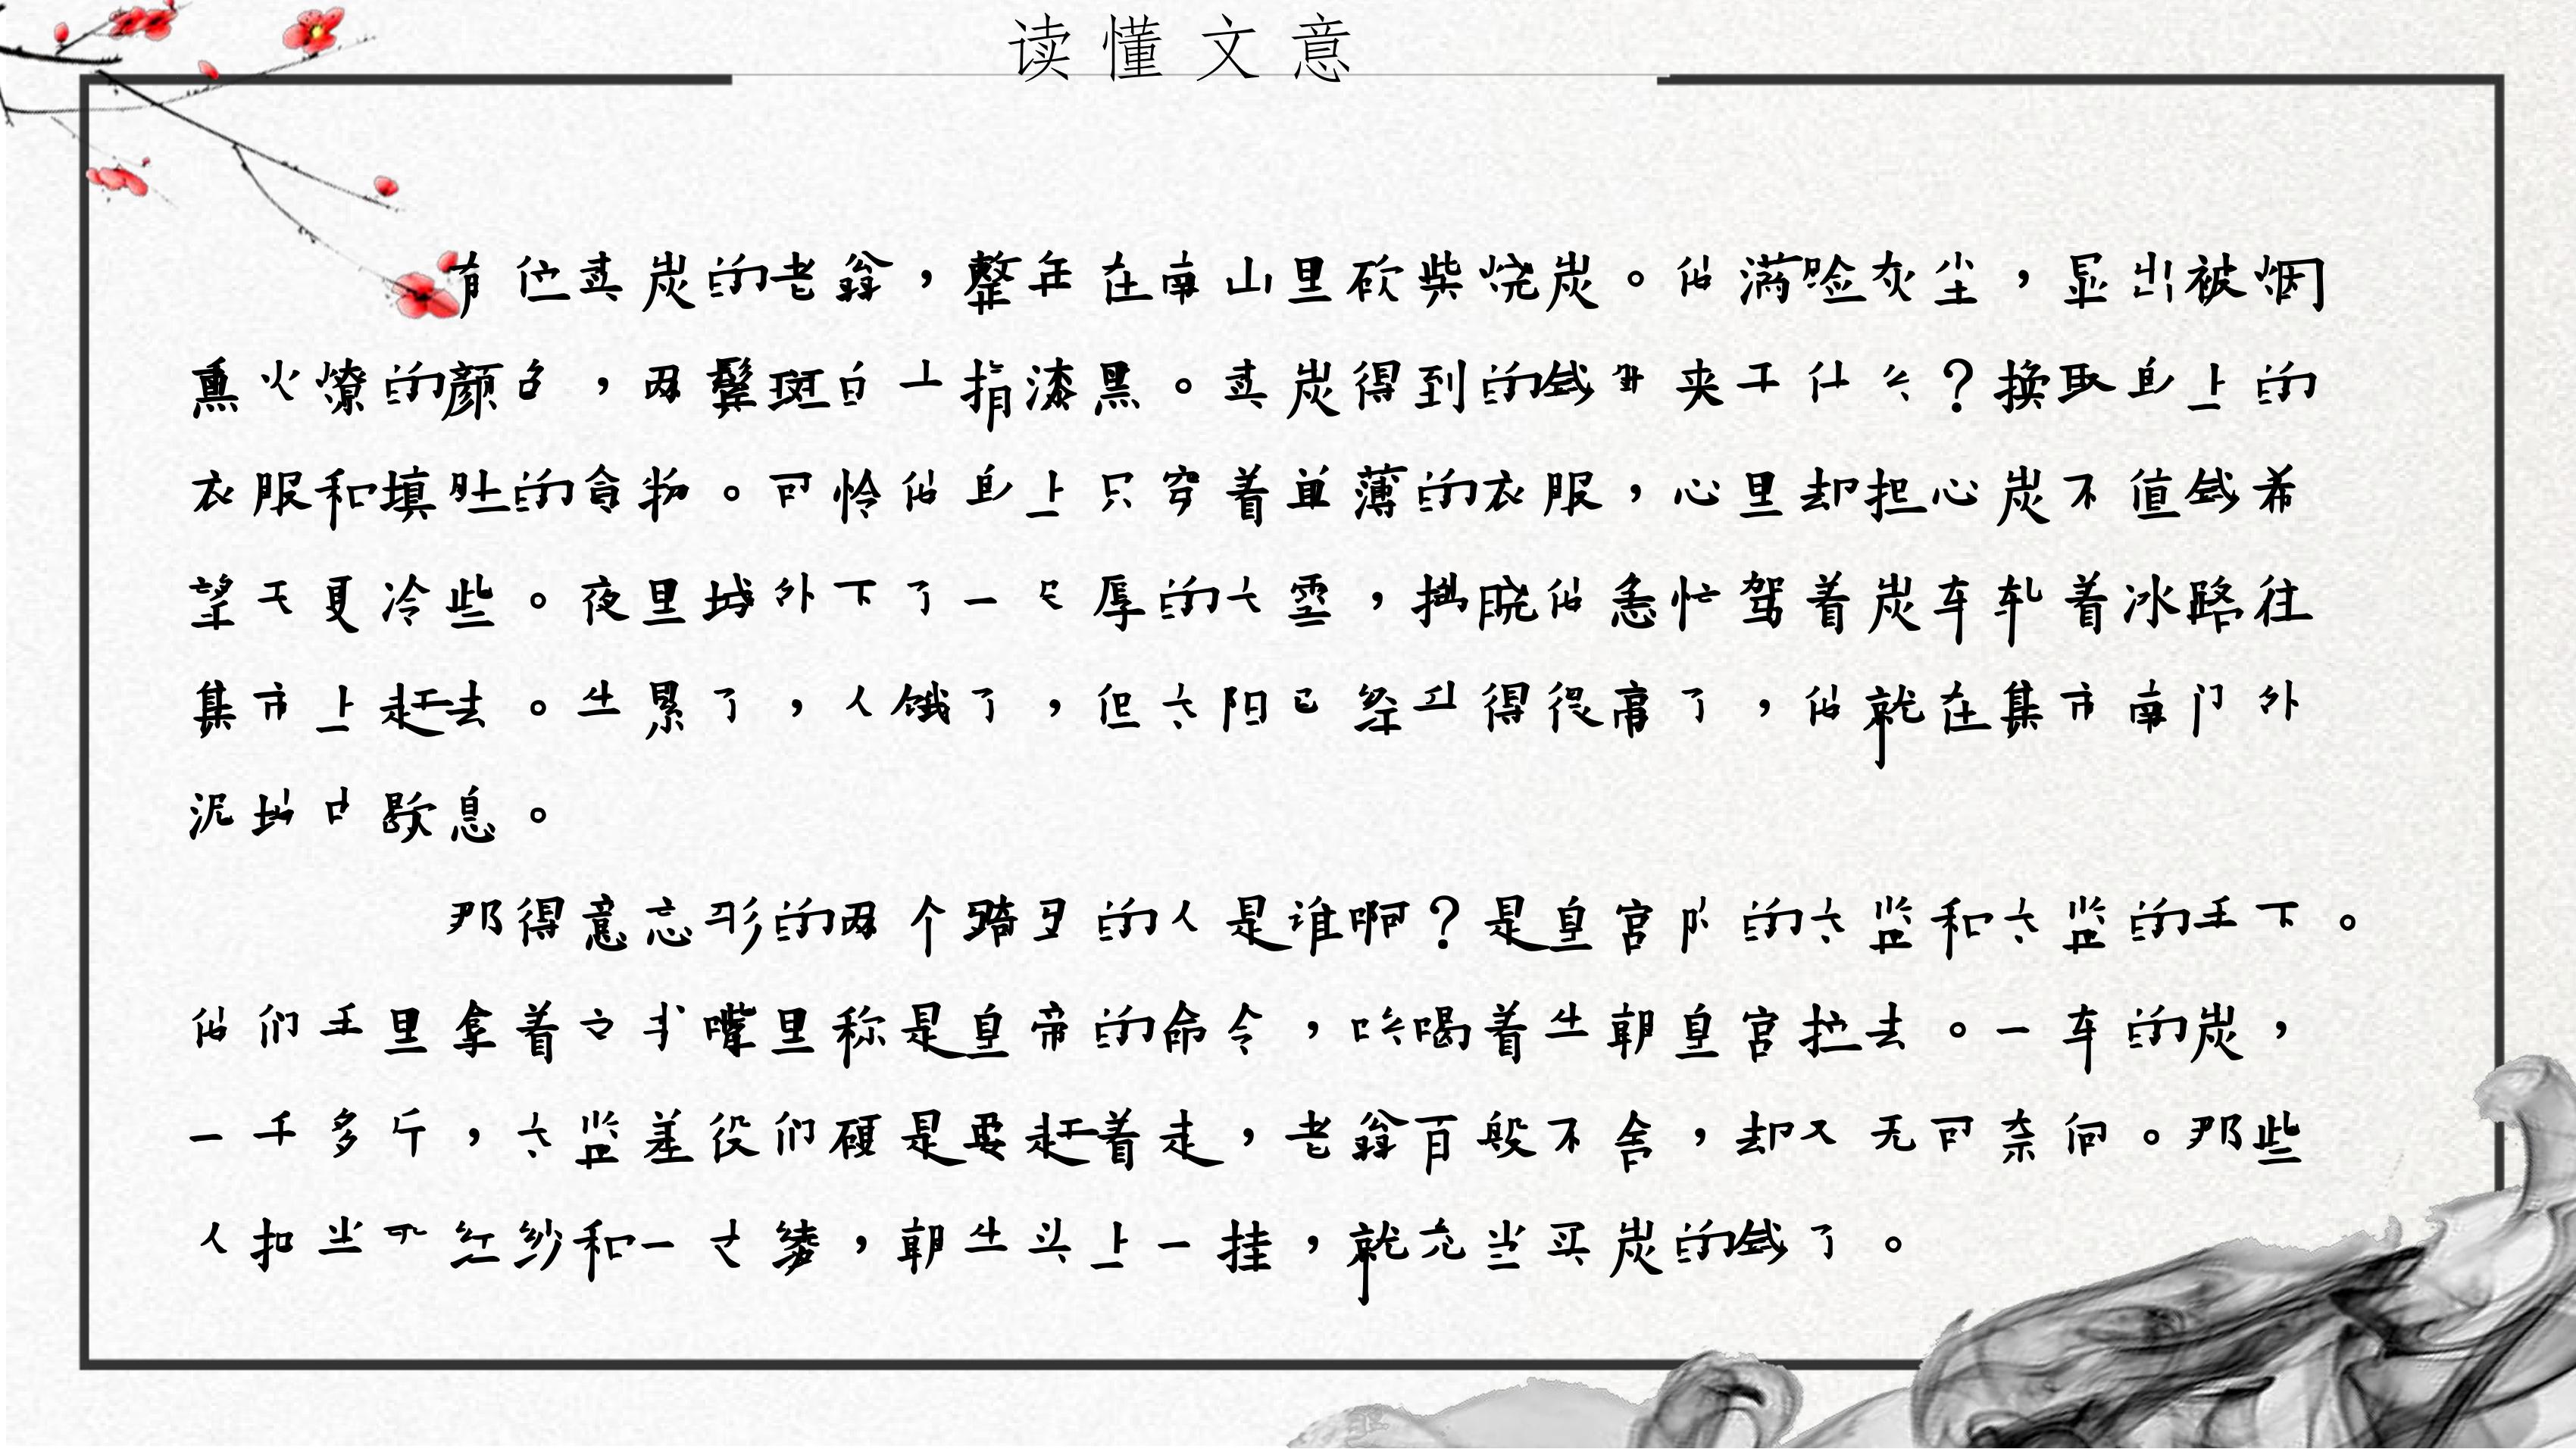 读懂文意
有位卖炭的老翁，整年在南山里砍柴烧炭。他满脸灰尘，显出被烟
熏火燎的颜色，两鬓斑白十指漆黑。卖炭得到的钱用来干什么？换取身上的
衣服和填肚的食物。可怜他身上只穿着单薄的衣服，心里却担心炭不值钱希
望天更冷些。夜里城外下了一尺厚的大雪，拂晓他急忙驾着炭车轧着冰路往
集市上赶去。牛累了，人饿了，但太阳已经升得很高了，他就在集市南门外
泥地中歇息。
那得意忘形的两个骑马的人是谁啊？是皇宫内的太监和太监的手下。
他们手里拿着文书嘴里称是皇帝的命令，吆喝着牛朝皇宫拉去。一车的炭，
一千多斤，太监差役们硬是要赶着走，老翁百般不舍，却又无可奈何。那些
人把半匹红纱和一丈绫，朝牛头上一挂，就充当买炭的钱了。